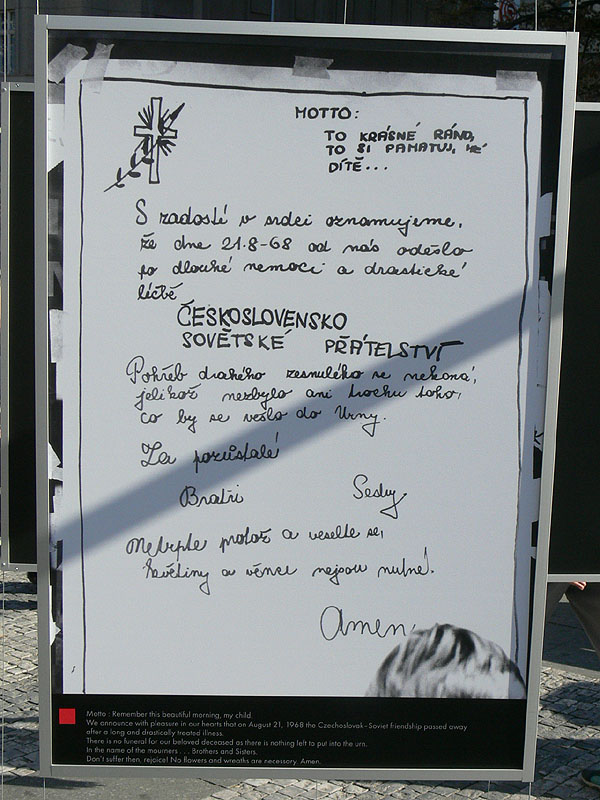 MOTTO:
TO KRÁSNÉ RÁNO,
TO SI PAMATUJ, MÉ
DÍTĚ...
S radostí v srdci oznamujeme,
že dne 21.8-68 od nás odešlo
po dlouhé nemoci a drastické
léčbě
ČESKOSLOVENSKO
SOVĚTSKÉ PŘÁTELSTVÍ
Pohřeb drahého zesnulého se nekoná,
jelikož nezbylo ani trochu toho,
co by se vešlo do Urny.
Za pozůstalé
Bratři Sestry
Netrpte protož a veselte se,
květiny a věnce nejsou nutné!
Amen.
Motto : Remember this beautiful morning, my child.
We announce with pleasure in our hearts that on August 21, 1968 the Czechoslovak - Soviet friendship passed away
after a long and drastically treated illness.
There is no funeral for our beloved deceased as there is nothing left to put into the urn.
In the name of the mourners . . . Brothers and Sisters.
Don't suffer then, rejoice! No flowers and wreaths are necessary. Amen.